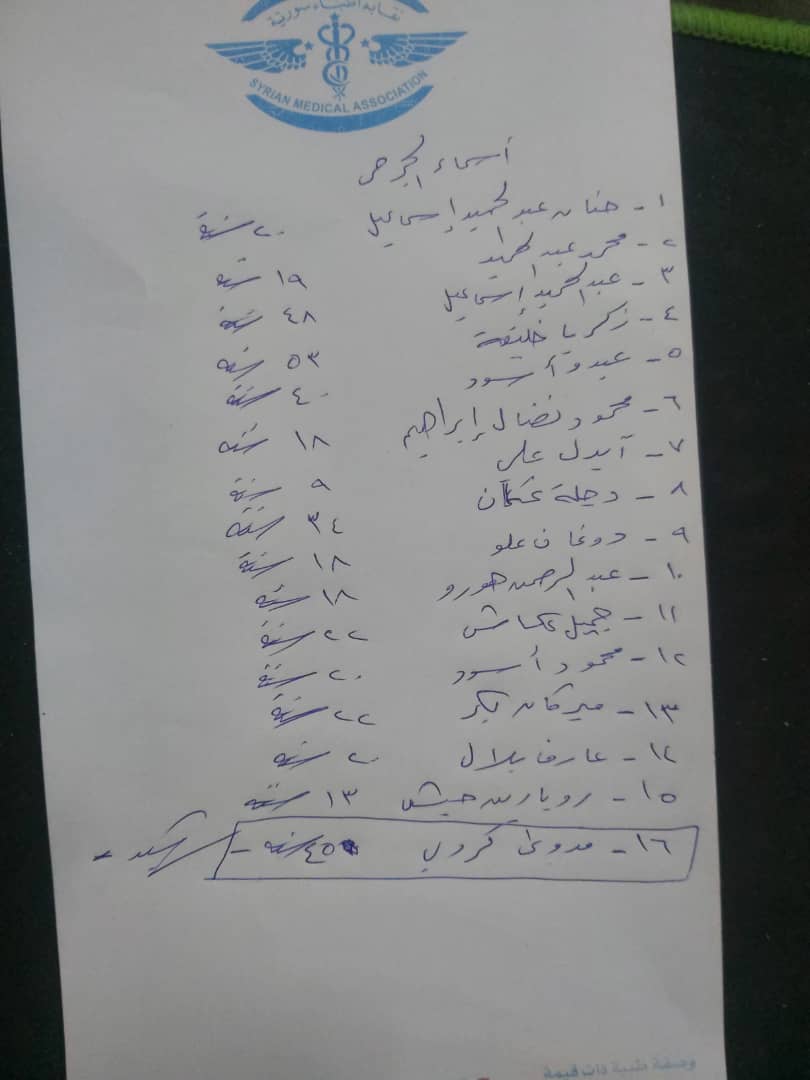 نقابة أطباء سورية
SYRIAN MEDICAL ASSOCIATION
أسماء الجرحى
١- حنان عبد الحميد إسماعيل ٢٠ سنة
٢- محمد عبد الحميد ١٩ سنة
٣- عبد الحميد إسماعيل ٤٨ سنة
٤- زكريا خليفة ٥٣ سنة
٥- عبدو أسود ٤٠ سنة
٦- محمود نضال إبراهيم ١٨ سنة
٧- آيدل علي ٩ سنة
٨- دجلة عثمان ٣٤ سنة
٩- دوغان علو ١٨ سنة
١٠- عبد الرحمن هورو ١٨ سنة
١١- جميل عكاش ٢٢ سنة
١٢- محمود أسود ٢٠ سنة
١٣- ميركان بكر ٢٢ سنة
١٤- عارف بلال ٢٠ سنة
١٥- رويارين حبش ١٣ سنة
١٦- كردي ٤٥ سنة -
وصفة طبية ذات قيمة